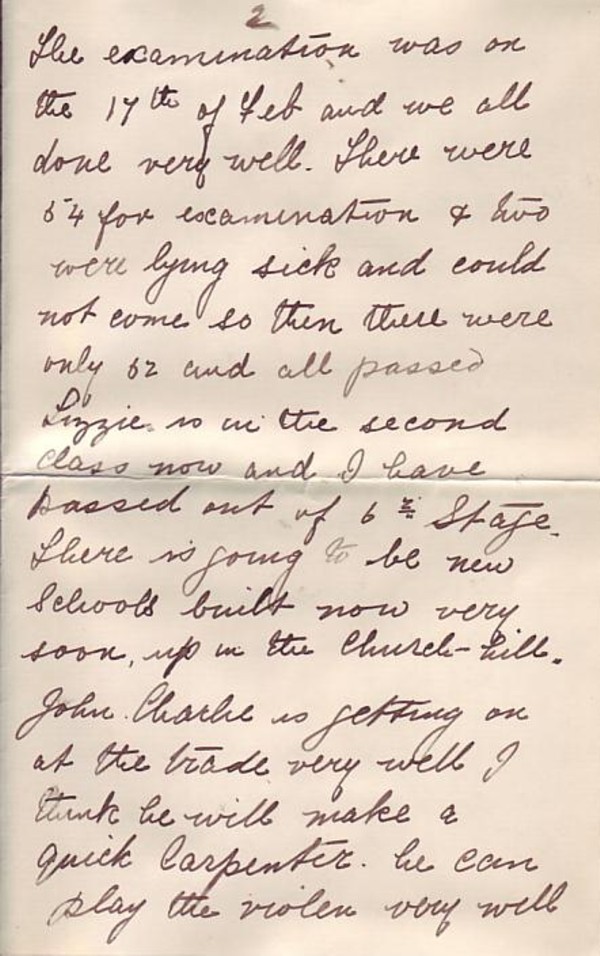 2
The examination was on
the 17th of Feb and we all
done very well. There were
54 for examination & two
were lying sick and could
not come so then there were
only 52 and all passed
Lizzie is in the second
class now and I have
passed out of 6th Stage.
There is going to be new
Schools built now very
soon, up in the Church-hill.
John Charlie is getting on
at the trade very well I
think he will make a
quick Carpenter. he can
play the violen very well